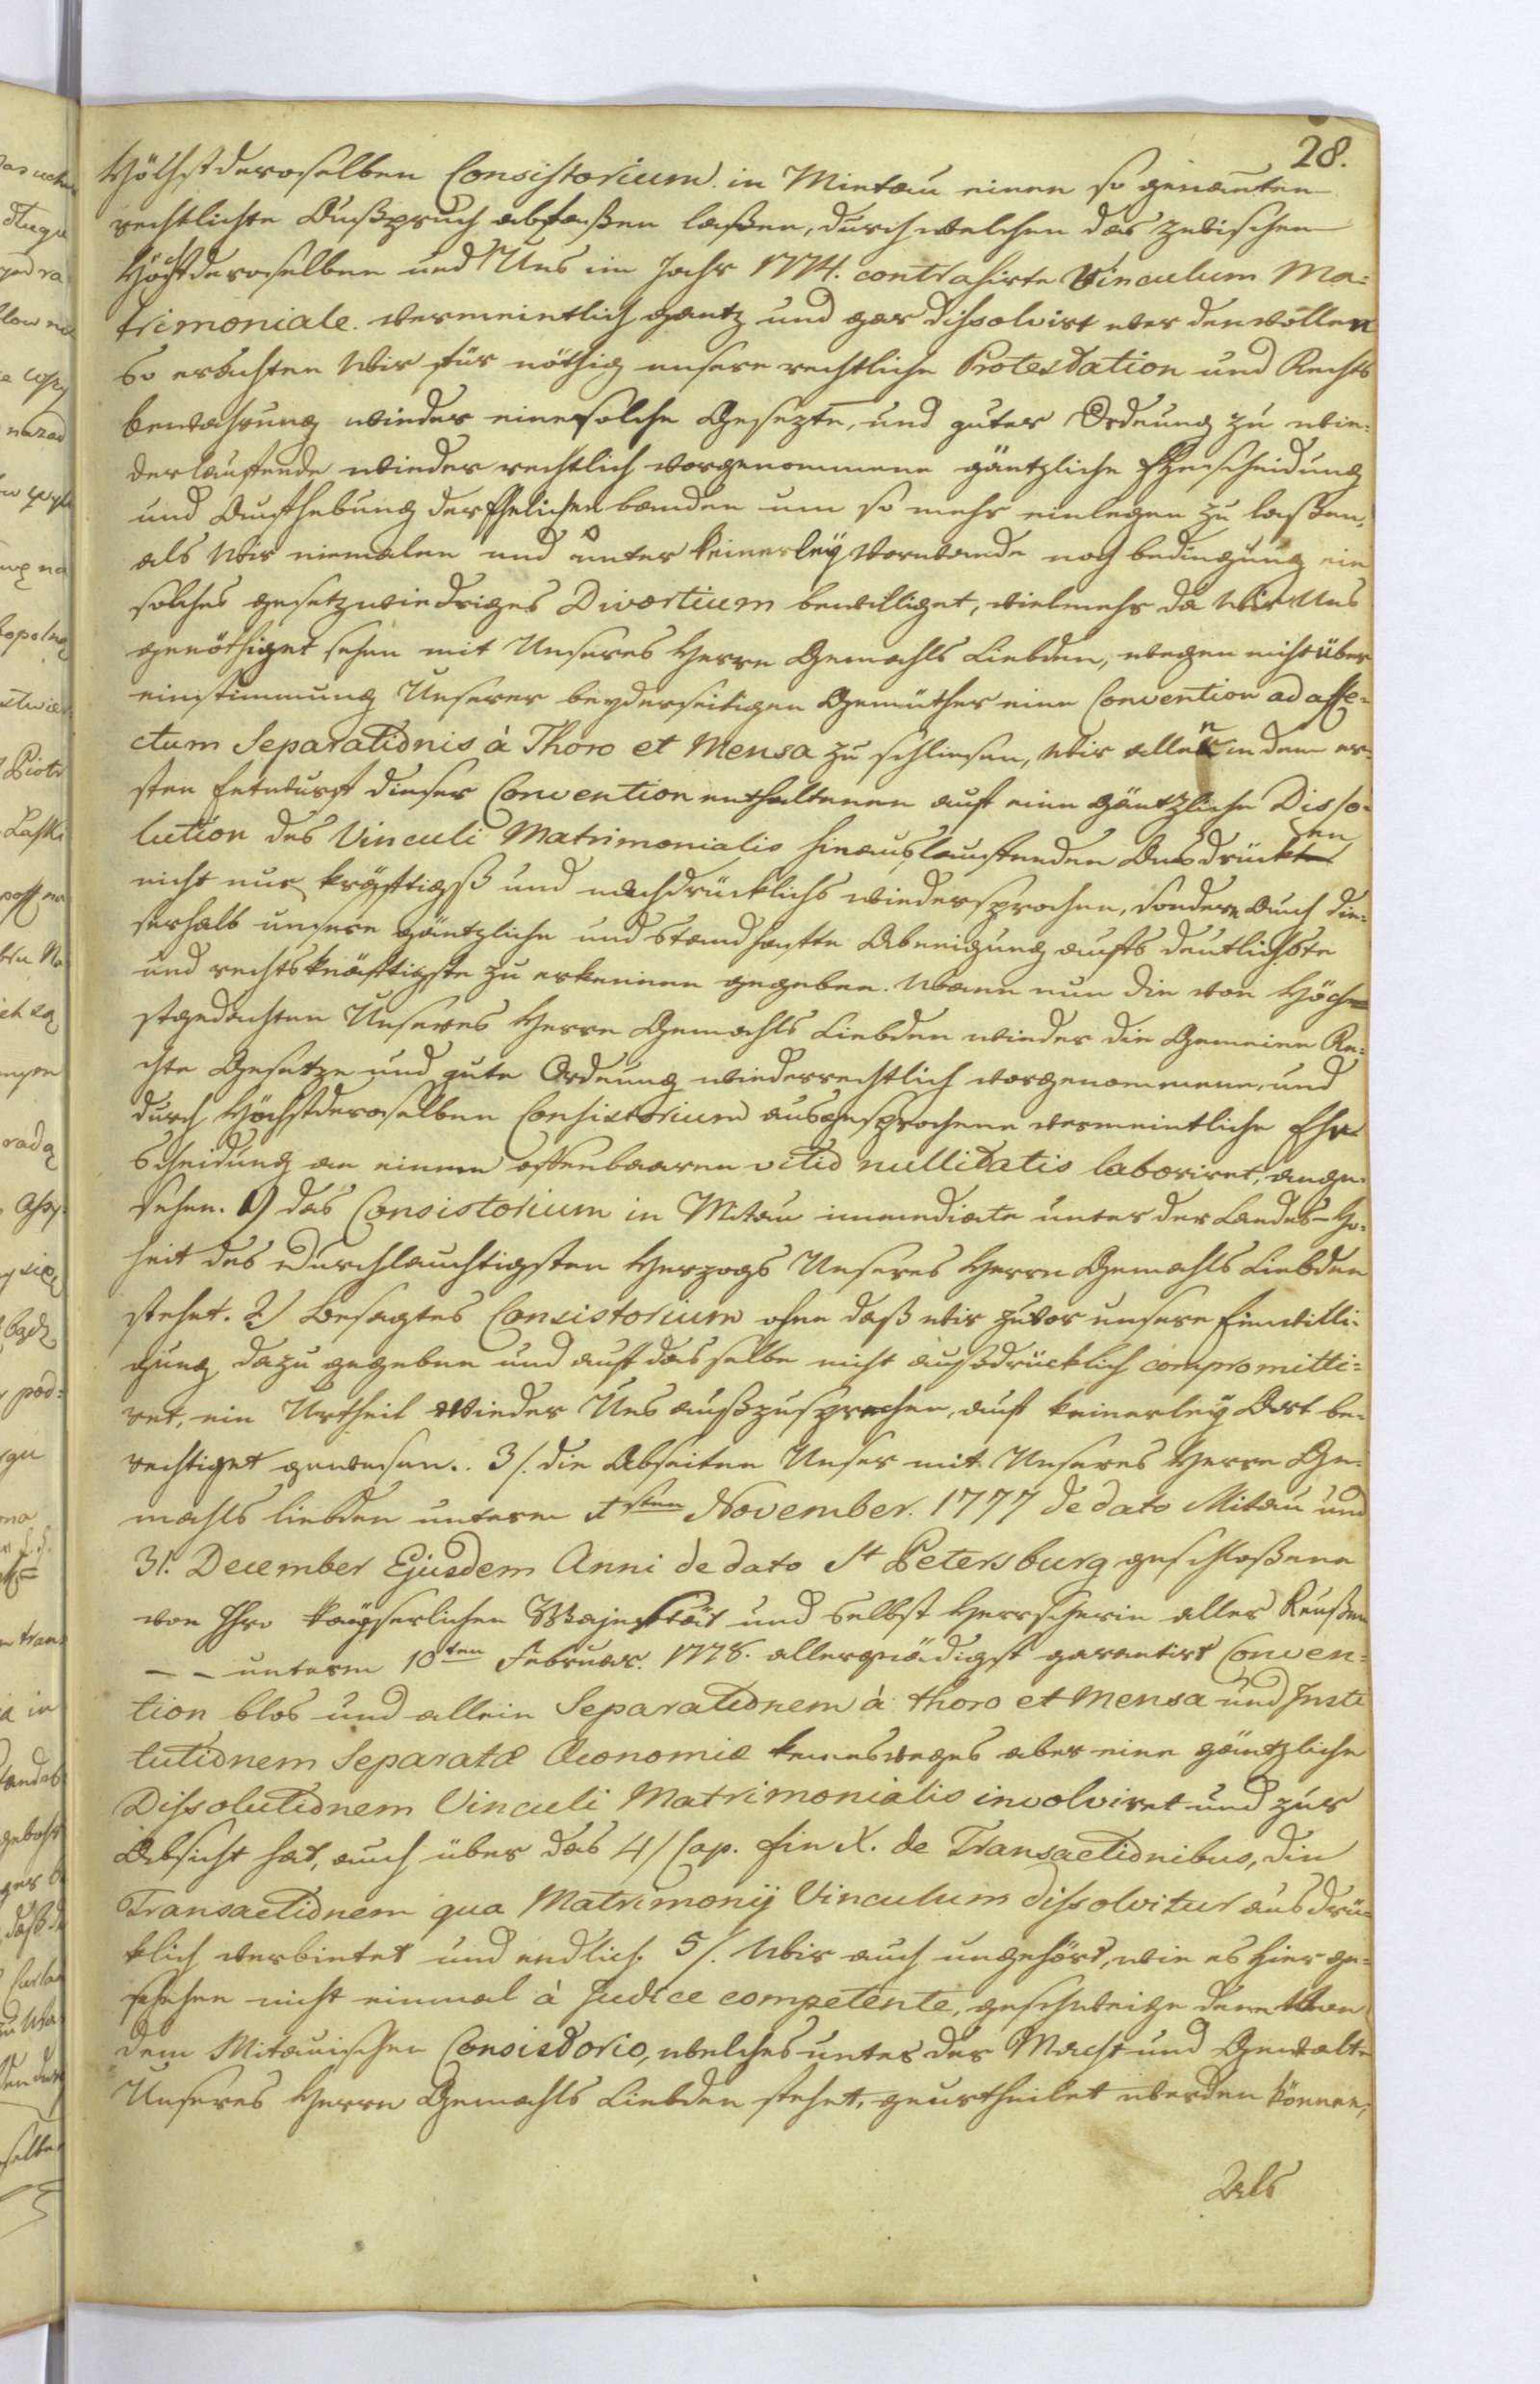 28.
Höchstderoselben Consistorium in Mietau einen so genanten
rechtlichte Außspruch abfaßen laßen, durch welchen das zwischen
Höchstderoselben und Uns im Jahr 1774. contrahirte Vinculum Ma-
trimoniale vermeintlich gantz und gar dissolvirt werden wollen
So erachten Wir für nöthig unsere rechtliche Protestation und Rechts
bewahrung wieder eine solche Gesezte, und guter Ordnung zu wie-
derlauffende wieder rechtlich vorgenommene gäntzliche Ehescheidung
und Aufhebung der Ehelichen banden um so mehr einlegen zu laßen,
als Wir niemalen und unter keinerley Vorwande noch bedingung ein
solches gesetzwiedriges Divortium bewilliget, vielmehr da Wir Uns
genöthiget sehen mit Unseres Herrn Gemahls Liebden, wegen nicht über
einstimmung Unserer beyderseitigen Gemüther eine Convention ad affe-
ctum Separationis à Thoro et Mensa zu schliesen, Wir allen in dem er-
sten Entwurf dieser Convention enthaltenen auf eine gäntzliche Disso-
lution des Vinculi Matrimonialis hinauslauffenden Ausdrücken
nicht nur kräfftigst und nachdrücklichs wiedersprochen, sondern auch die-
serhalb unsere gäntzliche und standhaffte Abneigung aufs deutlichste
und rechtskräfftigste zu erkennen gegeben. Wann nun die von Höch-
stgedachten Unseres Herrn Gemahls Liebden wieder die Gemeine Re-
chte Gesetze und gute Ordnung wiederrechtlich vorgenommene, und
durch Höchstderoselben Consistorium ausgesprochene vermeintliche Ehe
Scheidung an einem offenbaaren vitio nullitatis laboriret, ange-
sehen. 1) das Consistorium in Mitau immediate unter der Landes-Ho-
heit des Durchlauchtigsten Herzogs Unseres Herrn Gemahls Liebden
stehet. 2) Besagtes Consistorium ohne daß wir zuvor unsere Einwilli-
gung dazu gegeben und auf das selbe nicht außdrücklich compromitti-
ret, ein Urtheil wieder Uns außzusprechen, auf keinerley Art be-
rechtiget gewesen. 3/. die Abseiten Unser mit Unseres Herrn Ge-
mahls liebden unterm ten November. 1777 de dato Mitau und
31. December Ejusdem Anni de dato St Petersburg geschloßene
von Ihro Kayserlichen Majestät und Selbst Herrscherin aller Reußen
_ _ unterm 10ten Februar. 1778. allergnädigst garantirt Conven-
tion blos und allein Separationem à thoro et Mensa und Insti
tutionem Separatæ Œconomiæ keinesweges aber eine gäntzliche
Dissolutionem Vinculi Matrimonialis involviret und zur
Absicht hat, auch über das 4/ Cap. fin X. de Transactionibus, die
Transactionem qua Matrimonij Vinculum dissolvitur ausdrü-
klich verbietet und endlich 5/. Wir auch ungehört, wie es hier ge-
schehen nicht einmal à Judice competente, geschweige denn von
dem Mitauischen Consistorio, welches unter der Macht und Gewalt
Unseres Herrn Gemahls Liebden stehet, geurtheilet werden können,
Als